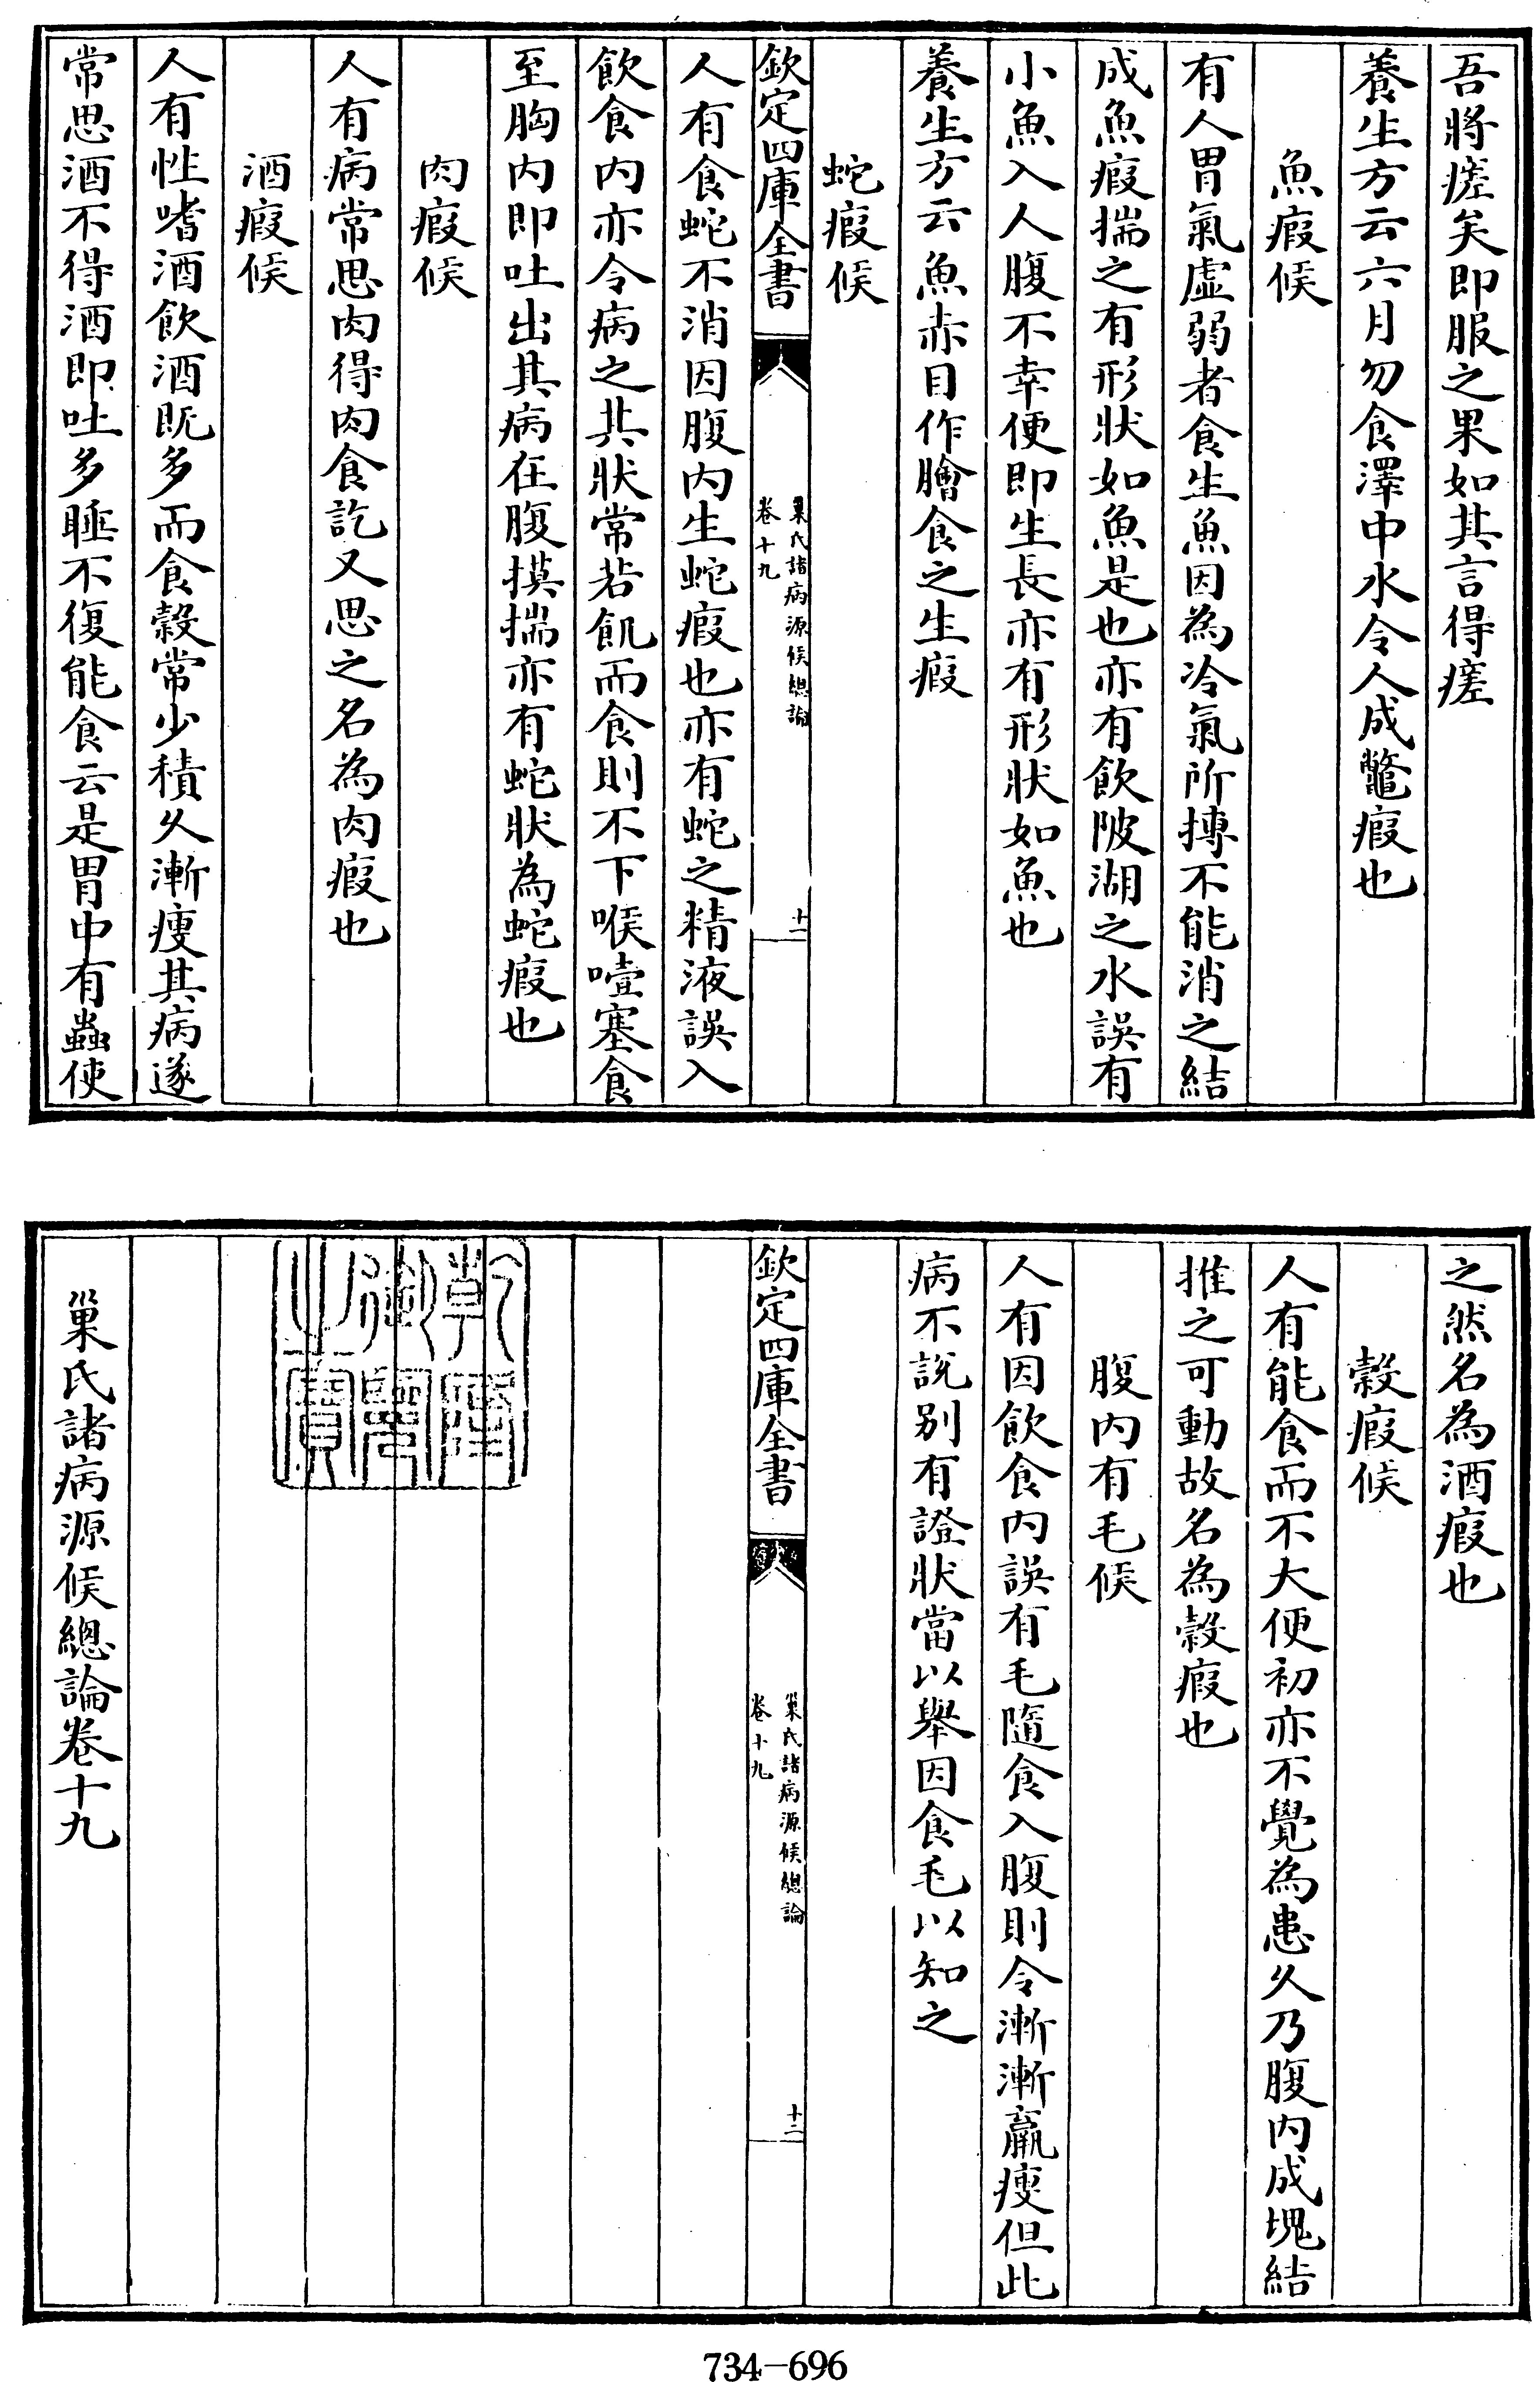 吾將瘥矣即服之果如其言得瘥
養生方云六月勿食澤中水令人成鼈瘕也
魚瘕候
有人胃氣虛弱者食生魚因為冷氣所搏不能消之結
成魚瘕揣之有形狀如魚是也亦有飲陂湖之水誤有
小魚入人腹不幸便即生長亦有形狀如魚也
養生方云魚赤目作膾食之生瘕
蛇瘕候
欽定四庫全書
巢氏諸病源候總論
卷十九
十一
人有食蛇不消因腹内生蛇瘕也亦有蛇之精液誤入
飲食内亦令病之其狀常若飢而食則不下喉噎塞食
至胸内即吐出其病在腹摸揣亦有蛇狀為蛇瘕也
肉瘕候
人有病常思肉得肉食訖又思之名為肉瘕也
酒瘕候
人有性嗜酒飲酒既多而食穀常少積久漸瘦其病遂
常思酒不得酒即吐多睡不復能食云是胃中有蟲使
之然名為酒瘕也
穀瘕候
人有能食而不大便初亦不覺為患久乃腹内成塊結
推之可動故名為穀瘕也
腹内有毛候
人有因飲食内誤有毛隨食入腹則令漸漸羸瘦但此
病不說别有證狀當以舉因食毛以知之
欽定四庫全書
巢氏諸病源候總論
卷十九
十二
乾隆
御覽
之寶
巢氏諸病源候總論卷十九
734-696